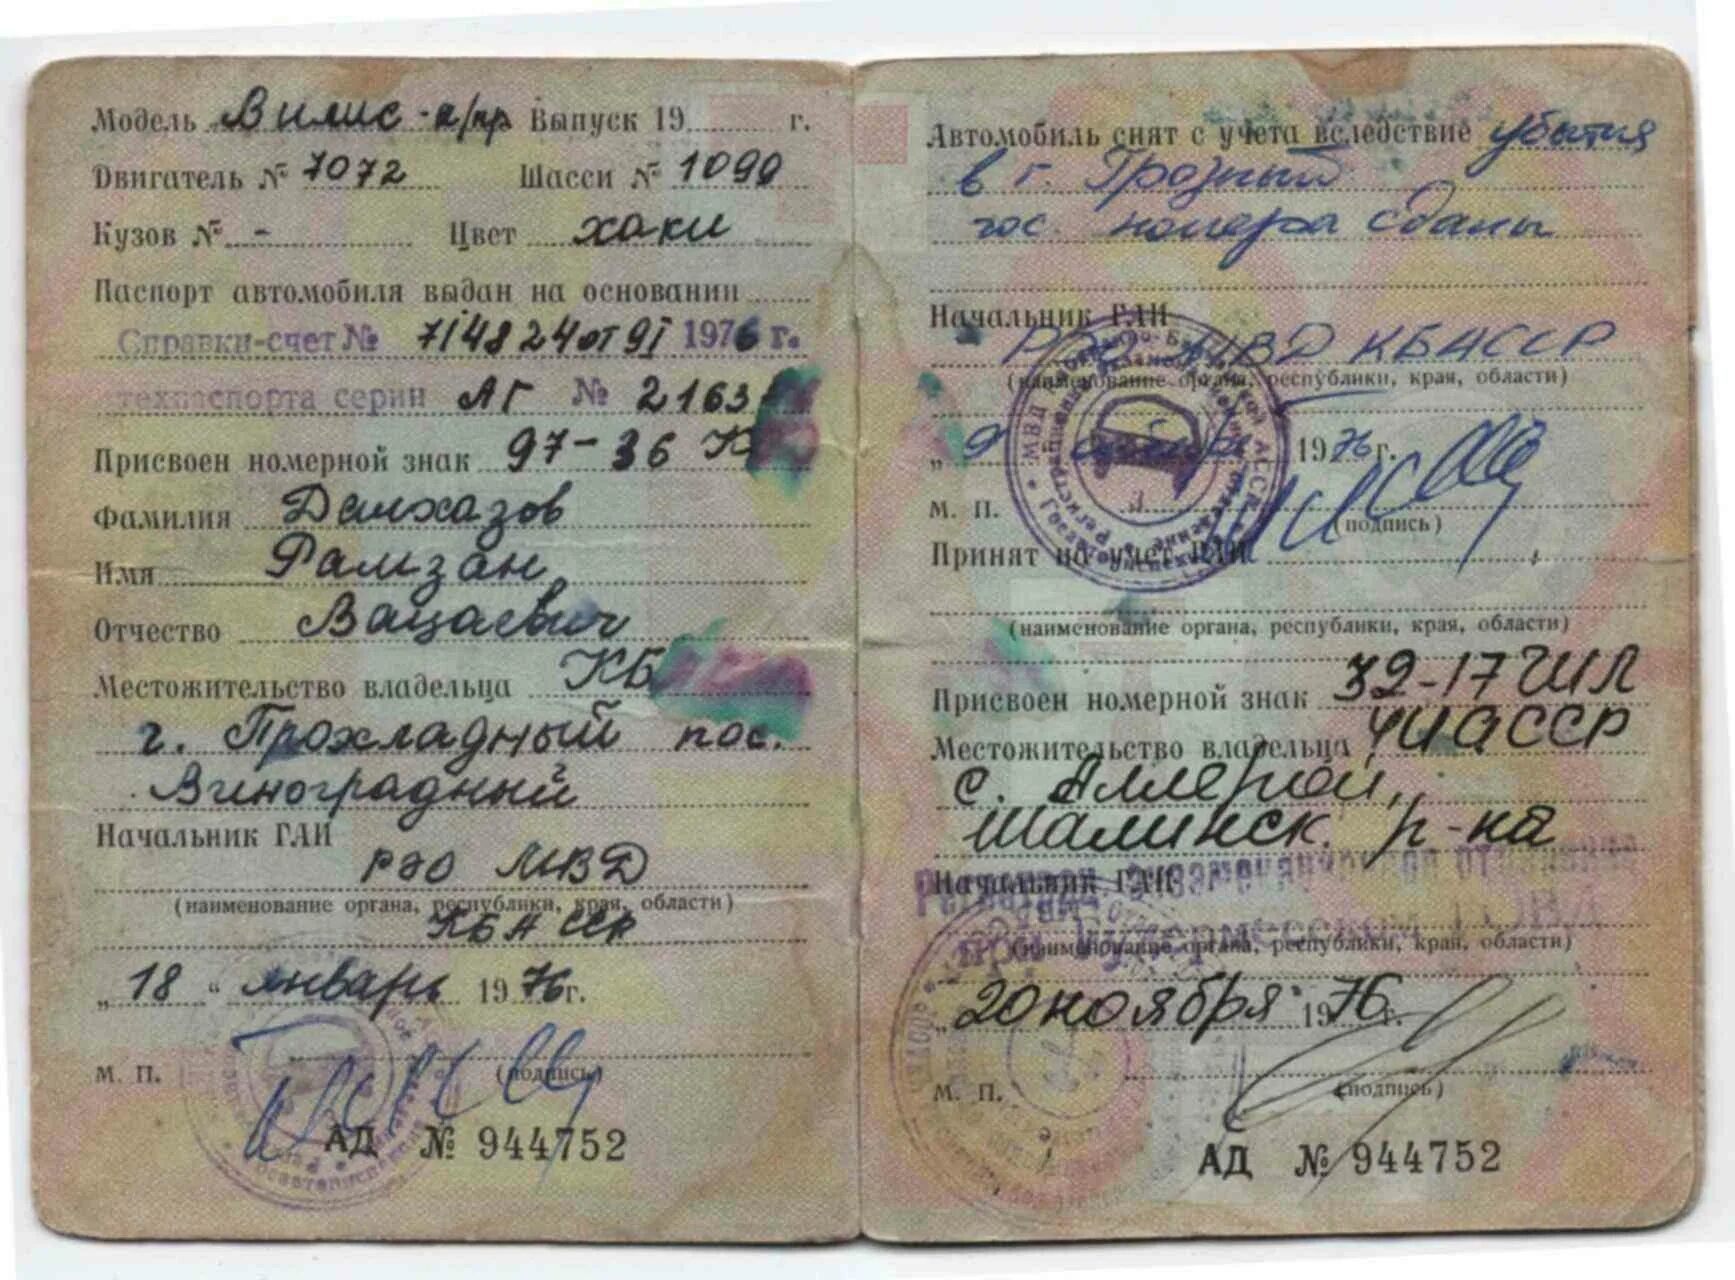 Модель Вилис-п/пр Выпуск 19 г.
Двигатель № 7072 Шасси № 1099
Кузов № - Цвет хаки
Паспорт автомобиля выдан на основании
Справки-счет № 714824 от 9I 1976 г.
техпаспорта серии АГ № 2163
Присвоен номерной знак 97-36
Фамилия Далхазов
Имя Рамзан
Отчество Вацаевич
Местожительство владельца КБ
г. Прохладный пос.
Виноградный
Начальник ГАИ
РЭО МВД
(наименование органа, республики, края, области)
КБАССР
„18“ январь 1976 г.
М. П. (подпись)
АД № 944752
Автомобиль снят с учета вследствие убытия
в г. Грозный
гос. номера сданы
Начальник ГАИ
РЭО МВД КБАССР
(наименование органа, республики, края, области)
1976 г.
М. П. (подпись)
Принят на учет ГАИ
(наименование органа, республики, края, области)
Присвоен номерной знак 32-17 ЧИЛ
Местожительство владельца ЧИАССР
с. Аллерой,
Шалинск. р-на
Начальник ГАИ
(наименование органа, республики, края, области)
20 ноября 1976 г.
М. П. (подпись)
АД № 944752